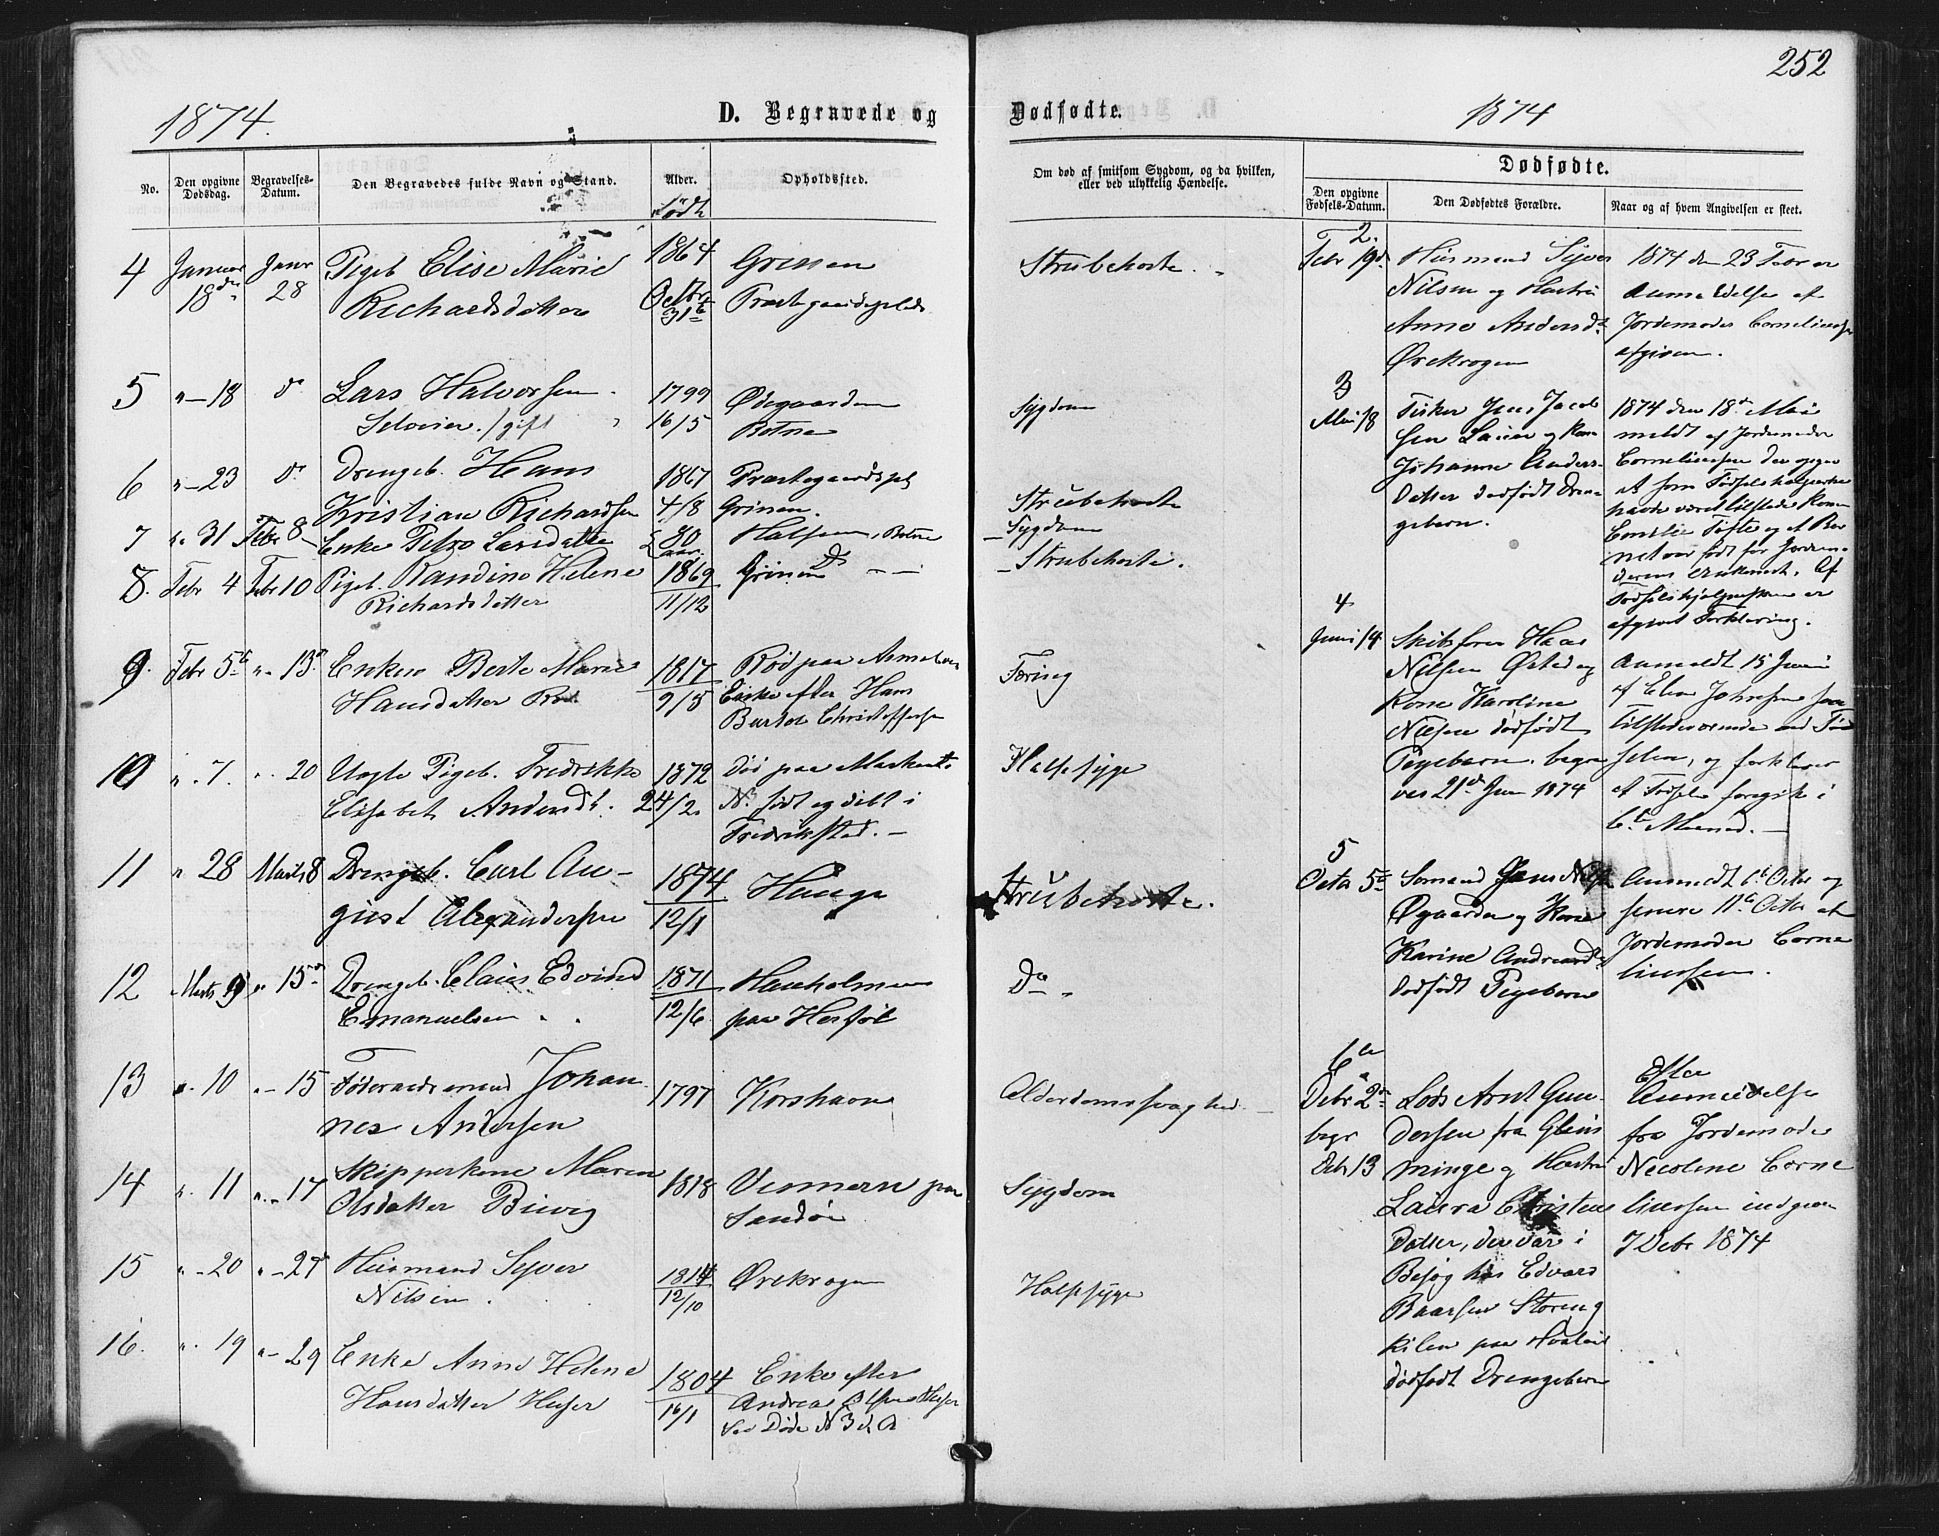 252
1874.
D. Begravede og
Dødfødte.
1874
No.
Den opgivne Dødsdag.
Begravelses-Datum.
Den Begravedes fulde Navn og Stand.
Alder.
Født
Opholdssted.
4 Januar 18de Janr 28 Pigeb Elise Marie 1864 Grinen
Richardsdatter Octbr 31te Præstegaardsplads
5 " - 18 do Lars Halvorsen 1799 Ødegaarden
/gift 16/5 Botne
6 " - 23 do Drengeb. Hans 1867 Præstegaardspl
Kristian Richardsen 4/8 Grinen.
7 " 31 Febr 8 Enke Petro Larsdatter 80 aar. Halsen, Botne
8. Febr 4 Febr 10 Pigeb. Randine Helene 1869 Grinen Do
Richardsdatter 11/12
9. Febr 5te " 13de Enken Berte Marie 1817 Rød paa Asmalø
Hansdatter Rød 9/5 Enke efter Hans
Christoffersen
10 " 7. " 20 Pigeb. Fredrikke 1872 Døi paa
Elisabet Andersdt. 24/2 No 3 født og døbt i
Fredrikstad. -
11 " 28 Marts 8 Drengeb. Carl Au- 1874 Hauge
gust Alexandersen 12/1
12 Marts 9 " 15de Drengeb. Claus Edvind 1871 Hauholmen
Emanuelsen 12/6 paa Herføl
13 " 10 " 15 Føderaadsmand Johan- 1797 Korshavn
nes Andersen
14 " 11 " 17 Skipperkone Maren 1818 paa
Olsdatter Sandøi
15 " - 20 " - 27 Huusmand Syver 1814 Ørekrogen
Nilsen. 12/10
16. " 19 " - 29 Enke Anne Helene 1804 Enke efter
Hansdatter Huser 16/1 Andreas Olsen Huser
Døde N 3 d. A
Om død af smitsom Sygdom, og da hvilken, eller ved ulykkelig Hændelse.
Strubehoste.
Sygdom
Strubehoste
Sygdom
Strubehoste.
Tæring
Halssyge
Strubehoste.
Do
Alderdomssvaghed
Sygdom
Halssyge
Dødfødte.
Den opgivne Fødsels-Datum.
Den Dødfødtes Forældre.
Naar og af hvem Angivelsen er skeet.
2.
Febr 19d.
Huusmand Syver
Nilsen og Hustru
Anne Andersdt
Ørekrogen
1874 den 23 Febr er
Anmeldelse af
Jordemoder Corneliussen
afgiven.
3
Mai 18
Fisker Jens Jacob
sen Lauer og Kone
Johanne Anders-
datter dødfødt Dren-
gebarn.
1874 den 18de Mai
meldt af Jordemoder
Corneliussen der opgav
at som Fødselshjælperske
havde været tilstede Konen
Emilie Tofte og at Bar-
net var født før Jordemo-
derens Ankomst. Af
Fødselshjælpersken er
afgivet Forklaring.
4
Juni 14
Nilsen Ørsted og
Kone Karoline
Nilsen dødfødt
Pigebarn. begra-
ves 21de Juni 1874
Anmeldt 15 Juni
af Johnsen som
tilstedeværende ved Fød-
selen, og forklarer
at Fødselen foregik i
6te Maaned. -
5
Octbr 5te
Sømand Jens Nils
Øgaarden og Kone
Karine Andreasdt
dødfødt Pigebarn
Anmeldt 6te Octbr og
senere 11te Octbr af
Jordemoder Corne
liussen.
6te
Debr 2den
begr
Debr 13
Lods Arnt Gun-
dersen fra Glem
minge og Hustru
Laura Christens
Datter, der var i
Besøg hos Edvard
Baarsen Storeng
kilen paa Hvaler
dødfødt Drengebarn
Efter
Anmeldelse
fra Jordemoder
Nicoline Corne
liussen indgiven
7 Debr 1874